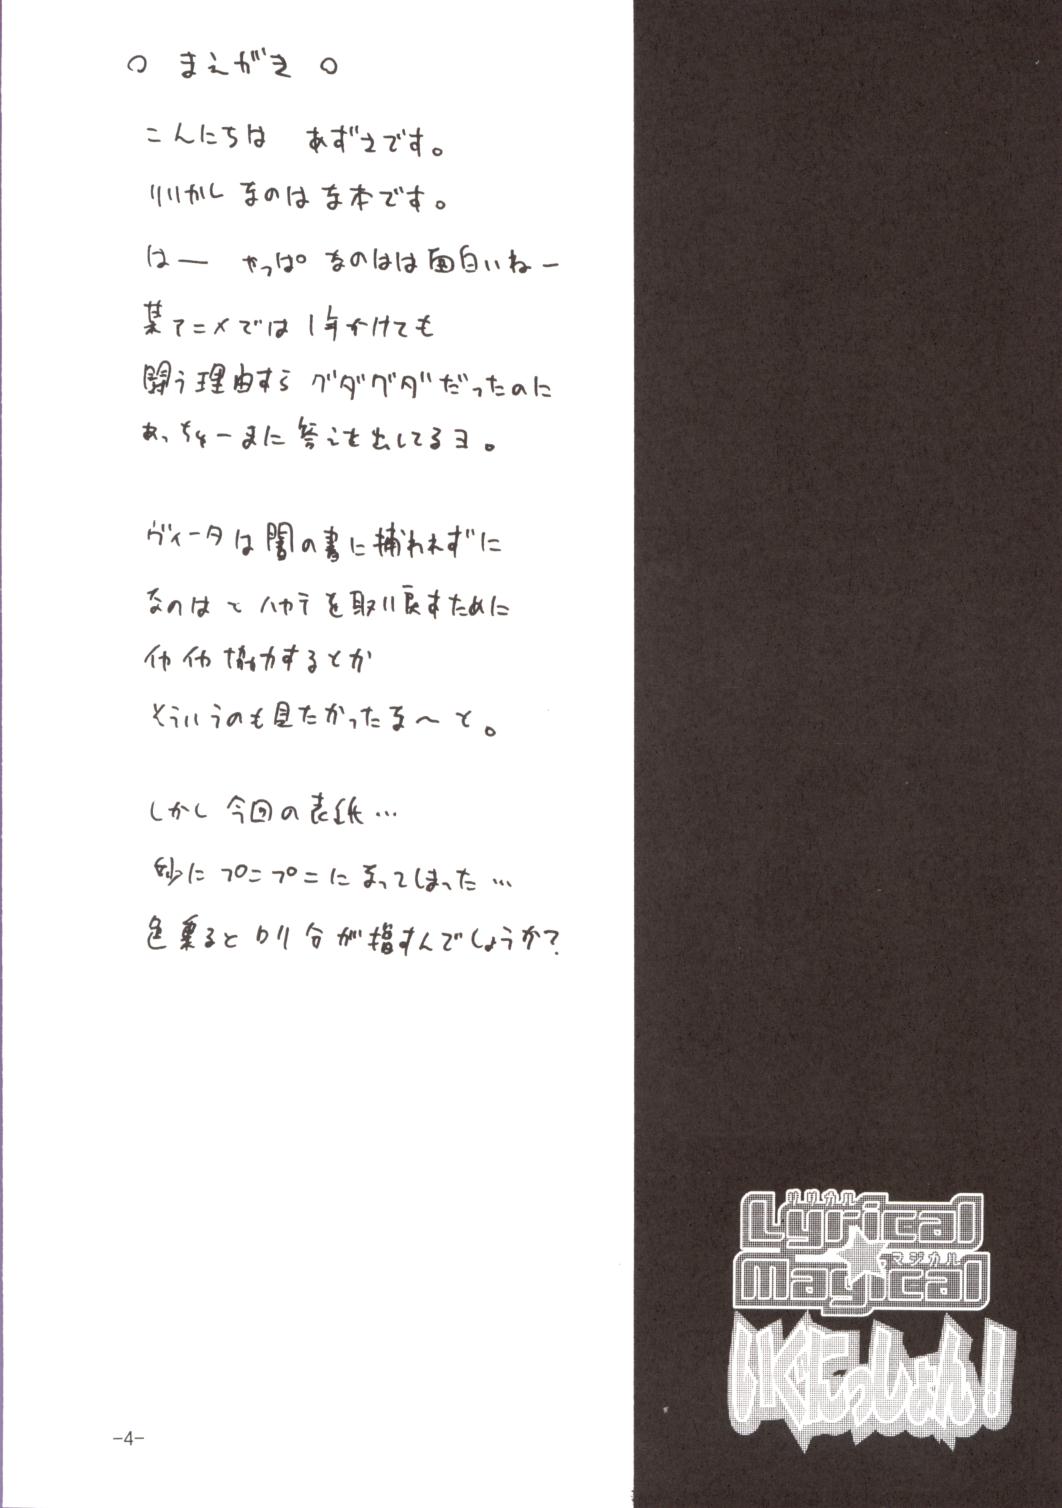 ○ まえがき ○
こんにちは あずさです。
リリカル なのはな本です。
はー やっぱ なのはは面白いねー
某アニメでは 1年かけても
闘う理由すら グダグダだったのに
あっちゅーまに 答えを出してるヨ。
ヴィータは闇の書に捕われずに
なのは と ハヤテを取り戻すために
イヤイヤ協力するとか
そういうのも見たかったな〜と。
しかし 今回の表紙…
妙に プニプニに なってしまった…
色業るとロリ分が指すんでしょうか?
リリカル
Lyrical
マジカル
Magical
-4-